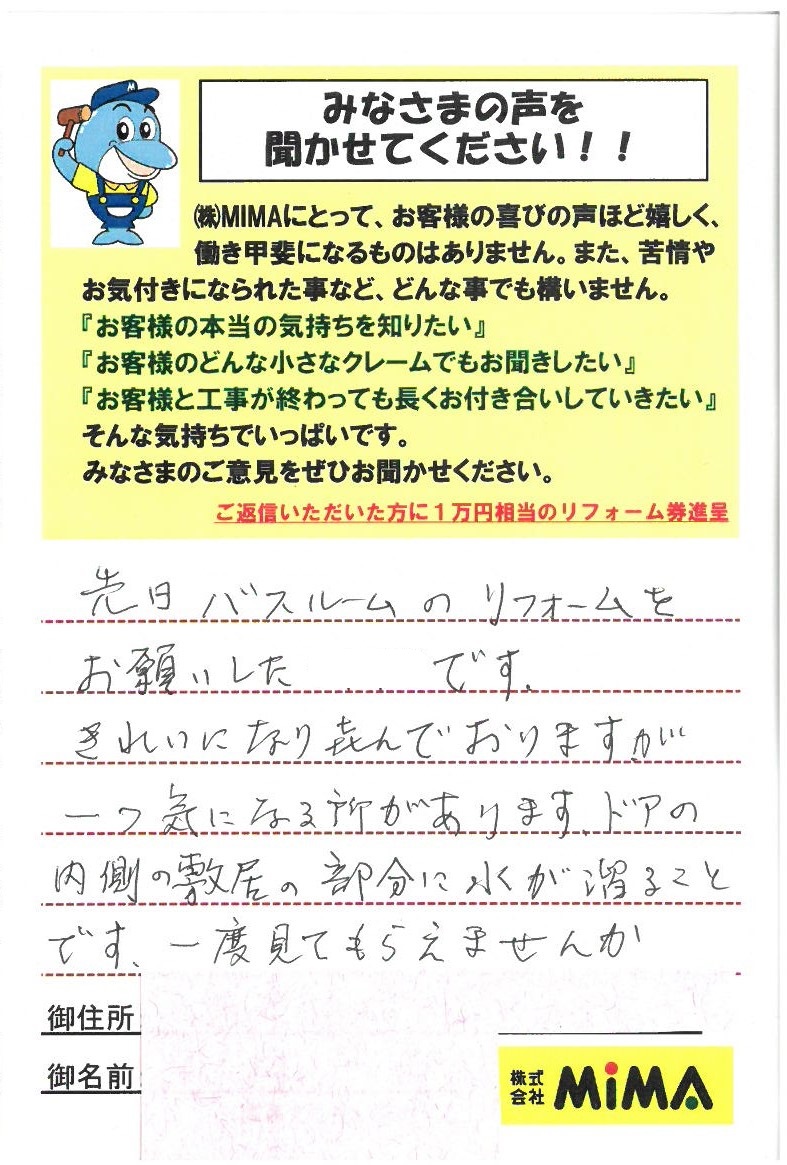 みなさまの声を
聞かせてください！！
㈱MIMAにとって、お客様の喜びの声ほど嬉しく、
働き甲斐になるものはありません。また、苦情や
お気付きになられた事など、どんな事でも構いません。
『お客様の本当の気持ちを知りたい』
『お客様のどんな小さなクレームでもお聞きしたい』
『お客様と工事が終わっても長くお付き合いしていきたい』
そんな気持ちでいっぱいです。
みなさまのご意見をぜひお聞かせください。
ご返信いただいた方に１万円相当のリフォーム券進呈
先日バスルームのリフォームを
お願いした です。
きれいになり喜んでおりますが
一つ気になる所があります。ドアの
内側の敷居の部分に水が溜ること
です。一度見てもらえませんか
御住所
御名前
株式会社 MIMA